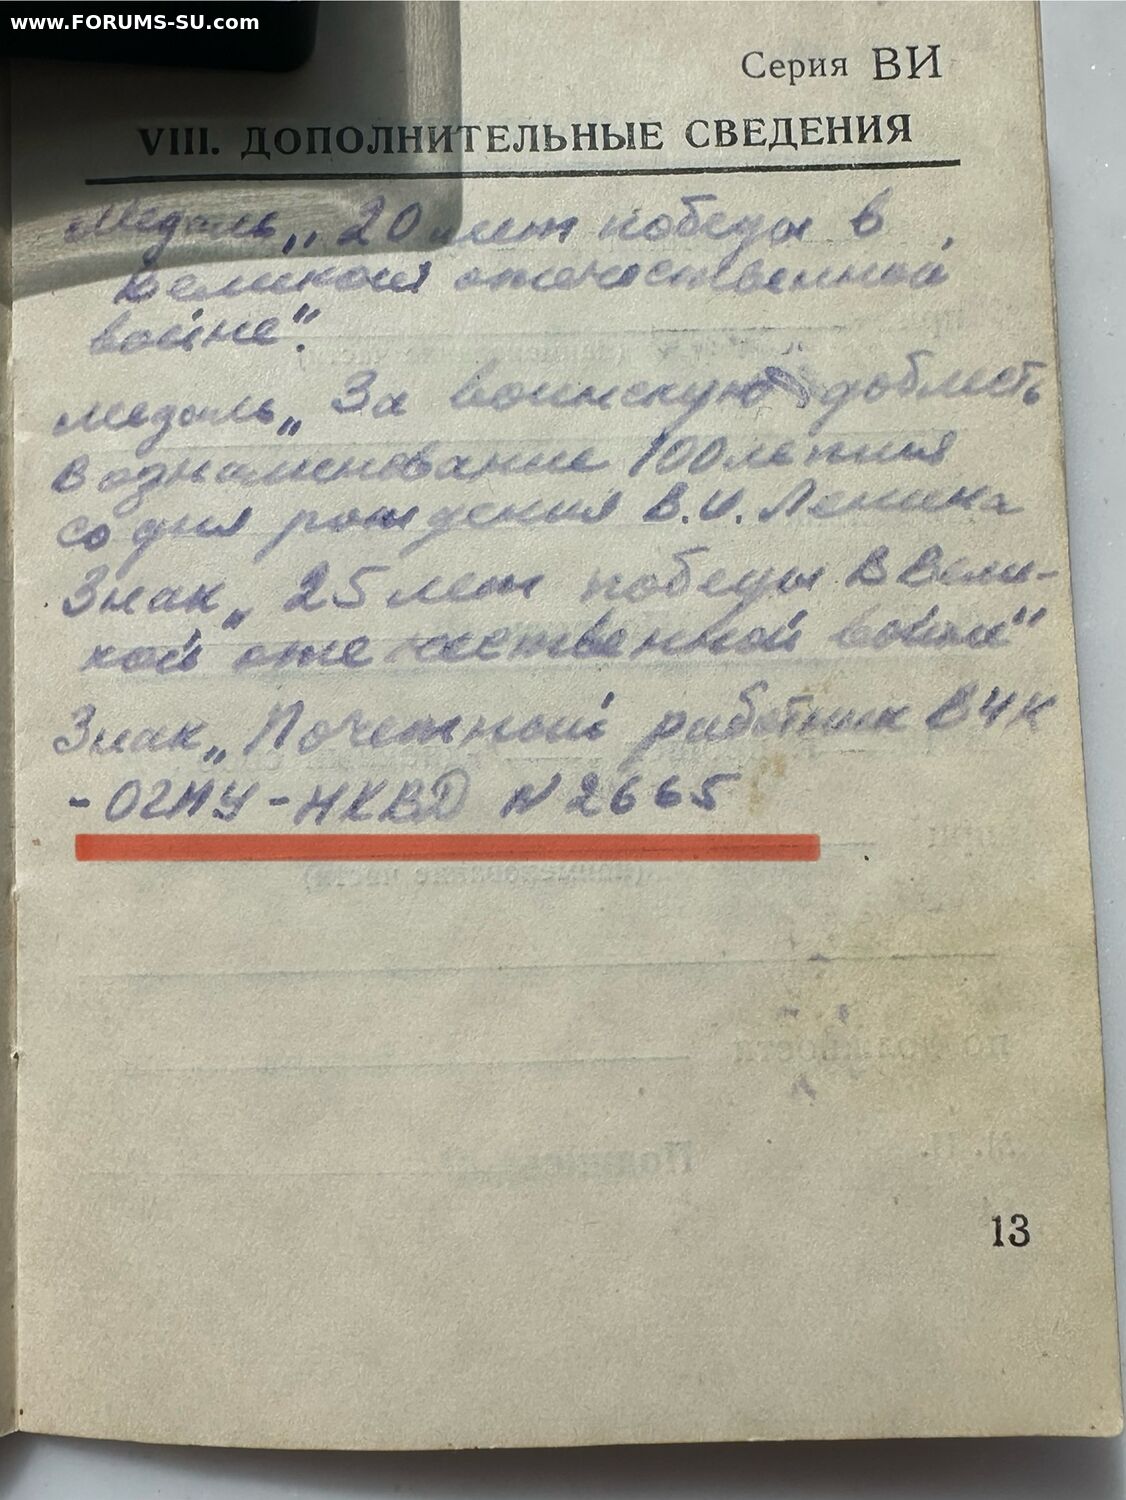 www.FORUMS-SU.com
Серия ВИ
VIII. ДОПОЛНИТЕЛЬНЫЕ СВЕДЕНИЯ
Медаль „20 лет победы в
великой отечественной
войне".
Медаль „За воинскую доблесть
в ознаменование 100летия
со дня рождения В.И. Ленина
Знак „25 лет победы в Вели-
кой отечественной войне"
Знак „Почетный работник ВЧК
-ОГПУ-НКВД N2665
13